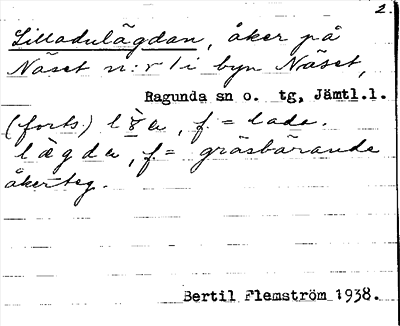 2.
Lilladulägdan, åker på
Näset n:r 1 i byn Näset,
Ragunda sn o. tg, Jämtl.l.
(forts.) f = lada.
f = gräsbärande
åkerteg.
Bertil Flemström 1938.